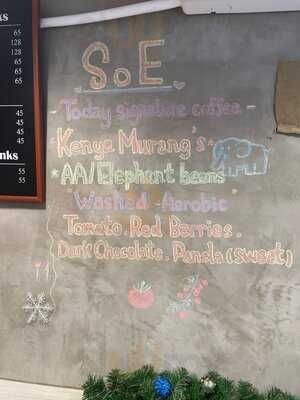 ks
65
128
128
65
65
65
45
45
45
nks
55
55
SoE
Today signature coffee -
"Kenya Murang's"
*AA/Elephant beans
Washed - Aerobic
Tomato. Red Berries.
Dark Chocolate. Panela (sweet)